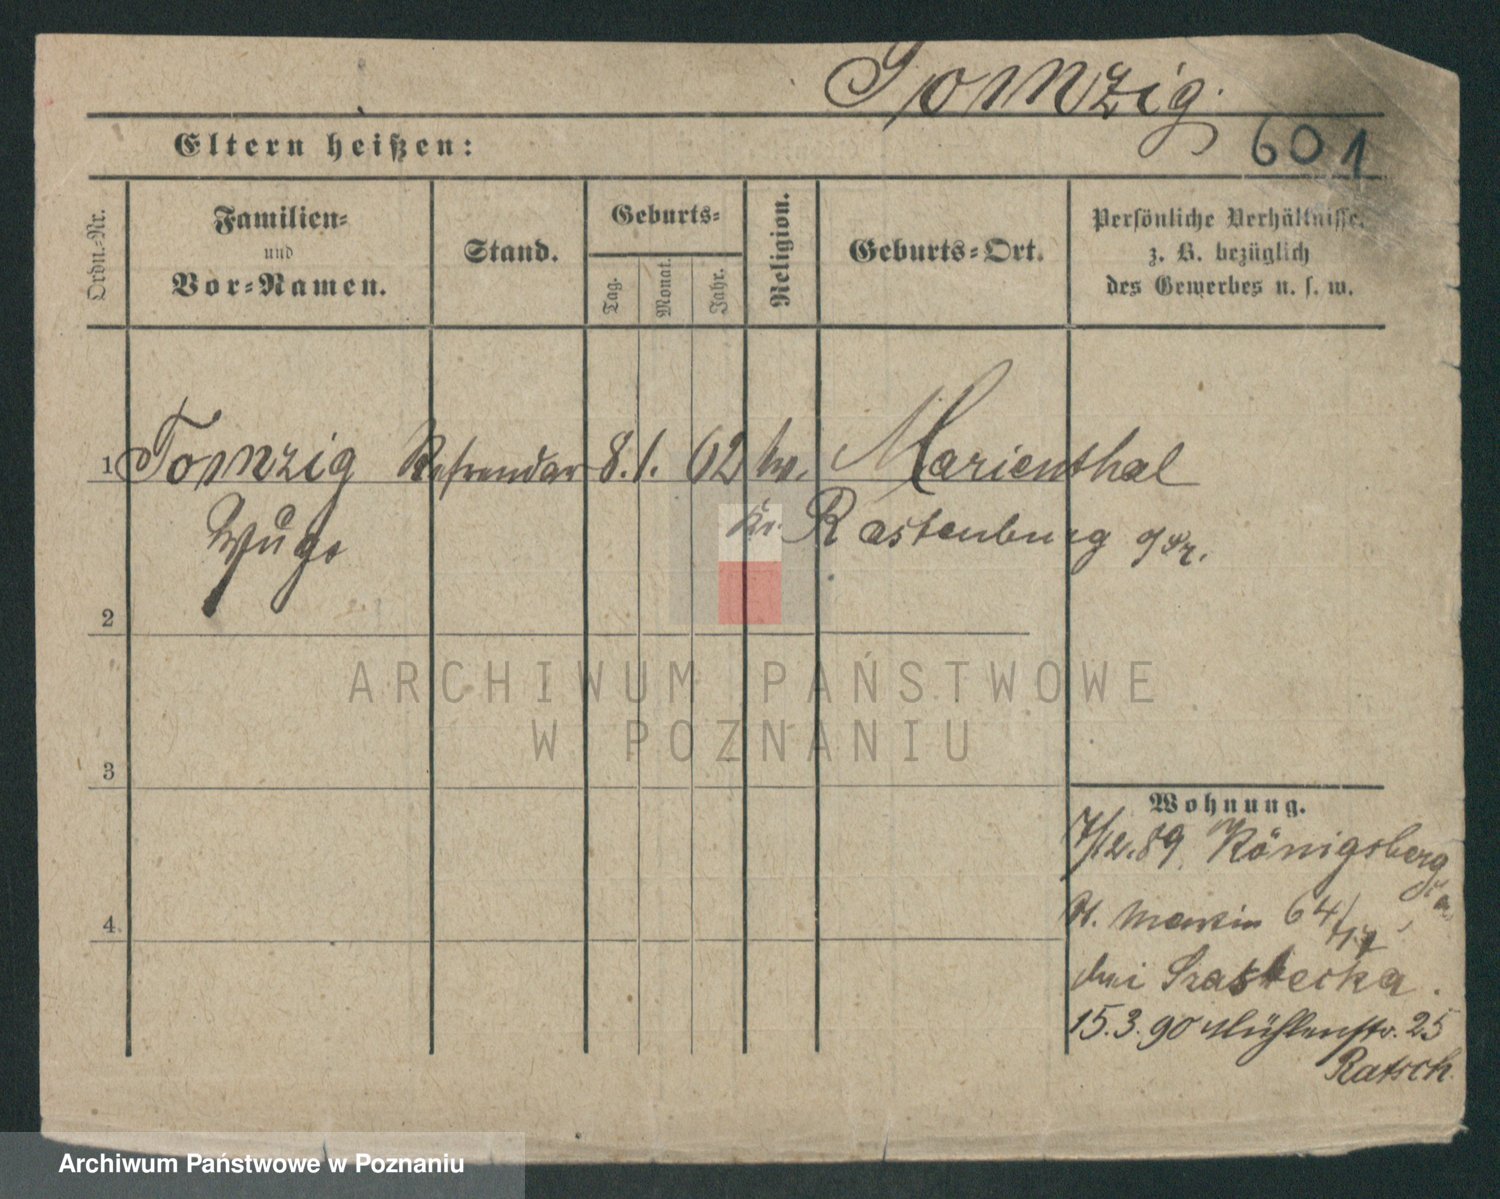 Tomzig.
601
Eltern heißen:
Ordn.-Nr.
Familien-
und
Vor-Namen.
Stand.
Geburts-
Tag.
Monat.
Jahr.
Religion.
Geburts-Ort.
Persönliche Verhältnisse.
z. B. bezüglich
des Gewerbes u. s. w.
1 Tomzig Refrendar 8. 1. 62 ev. Marienthal
Hugo Kr. Rastenburg
2
ARCHIWUM PAŃSTWOWE
W POZNANIU
3
Wohnung.
7/12.89. Königsberg
St. Martin 64/
bei
4
15.3.90 Mühlenstr. 25
Ratsch
Archiwum Państwowe w Poznaniu